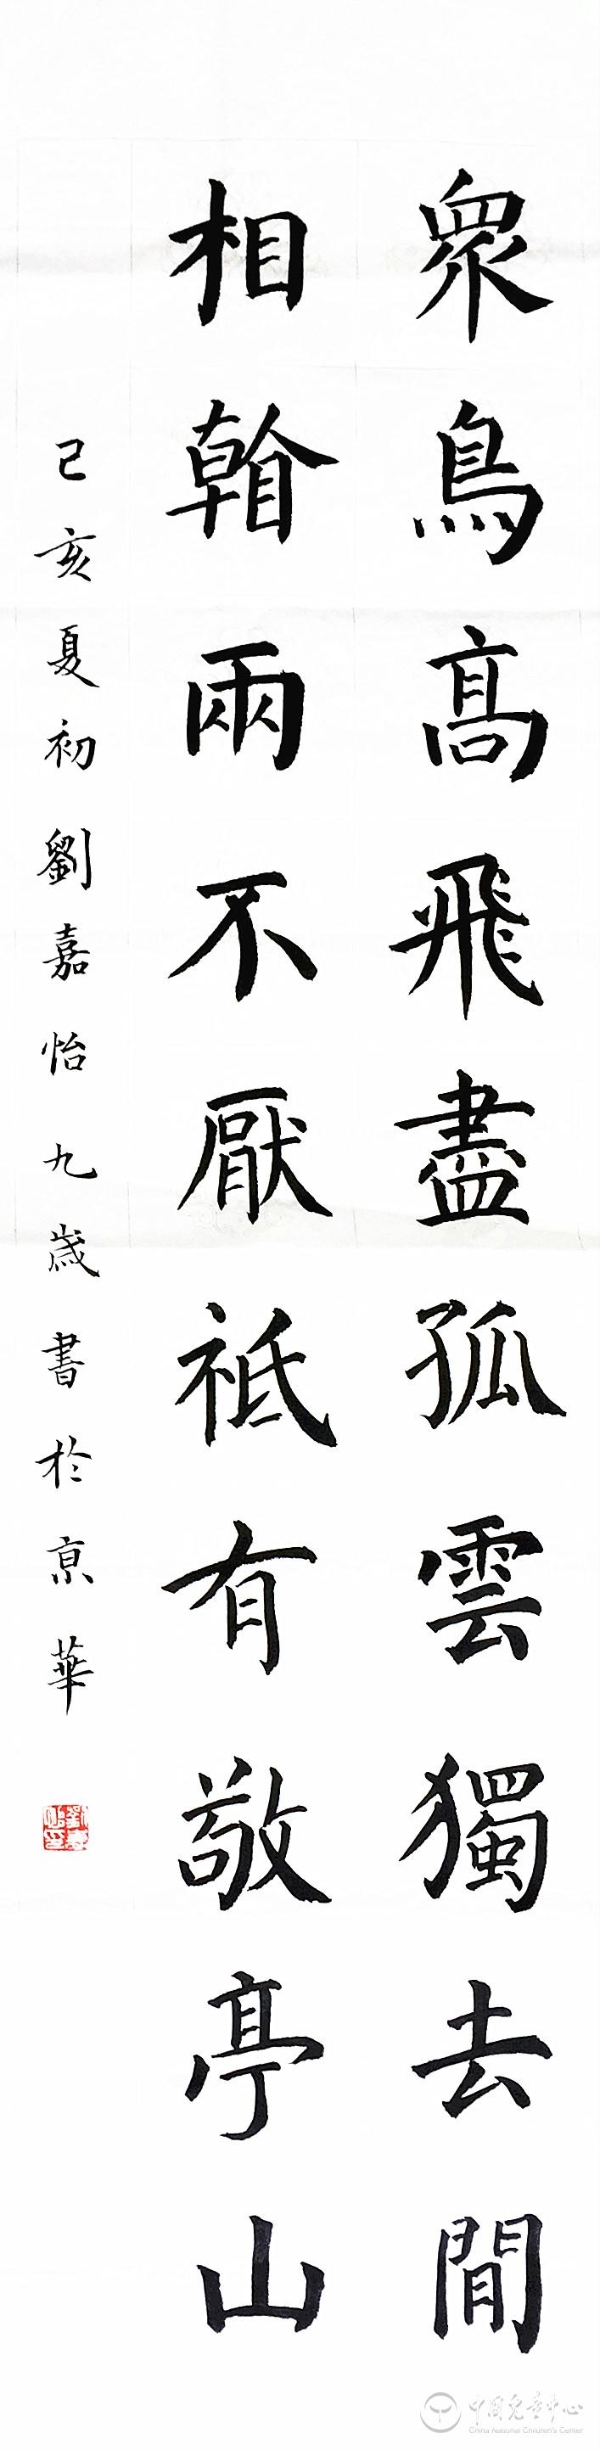 眾鳥高飛盡孤雲獨去閒
相看兩不厭祇有敬亭山
己亥夏初劉嘉怡九歲書於京華
中国儿童中心
China National Children's Center